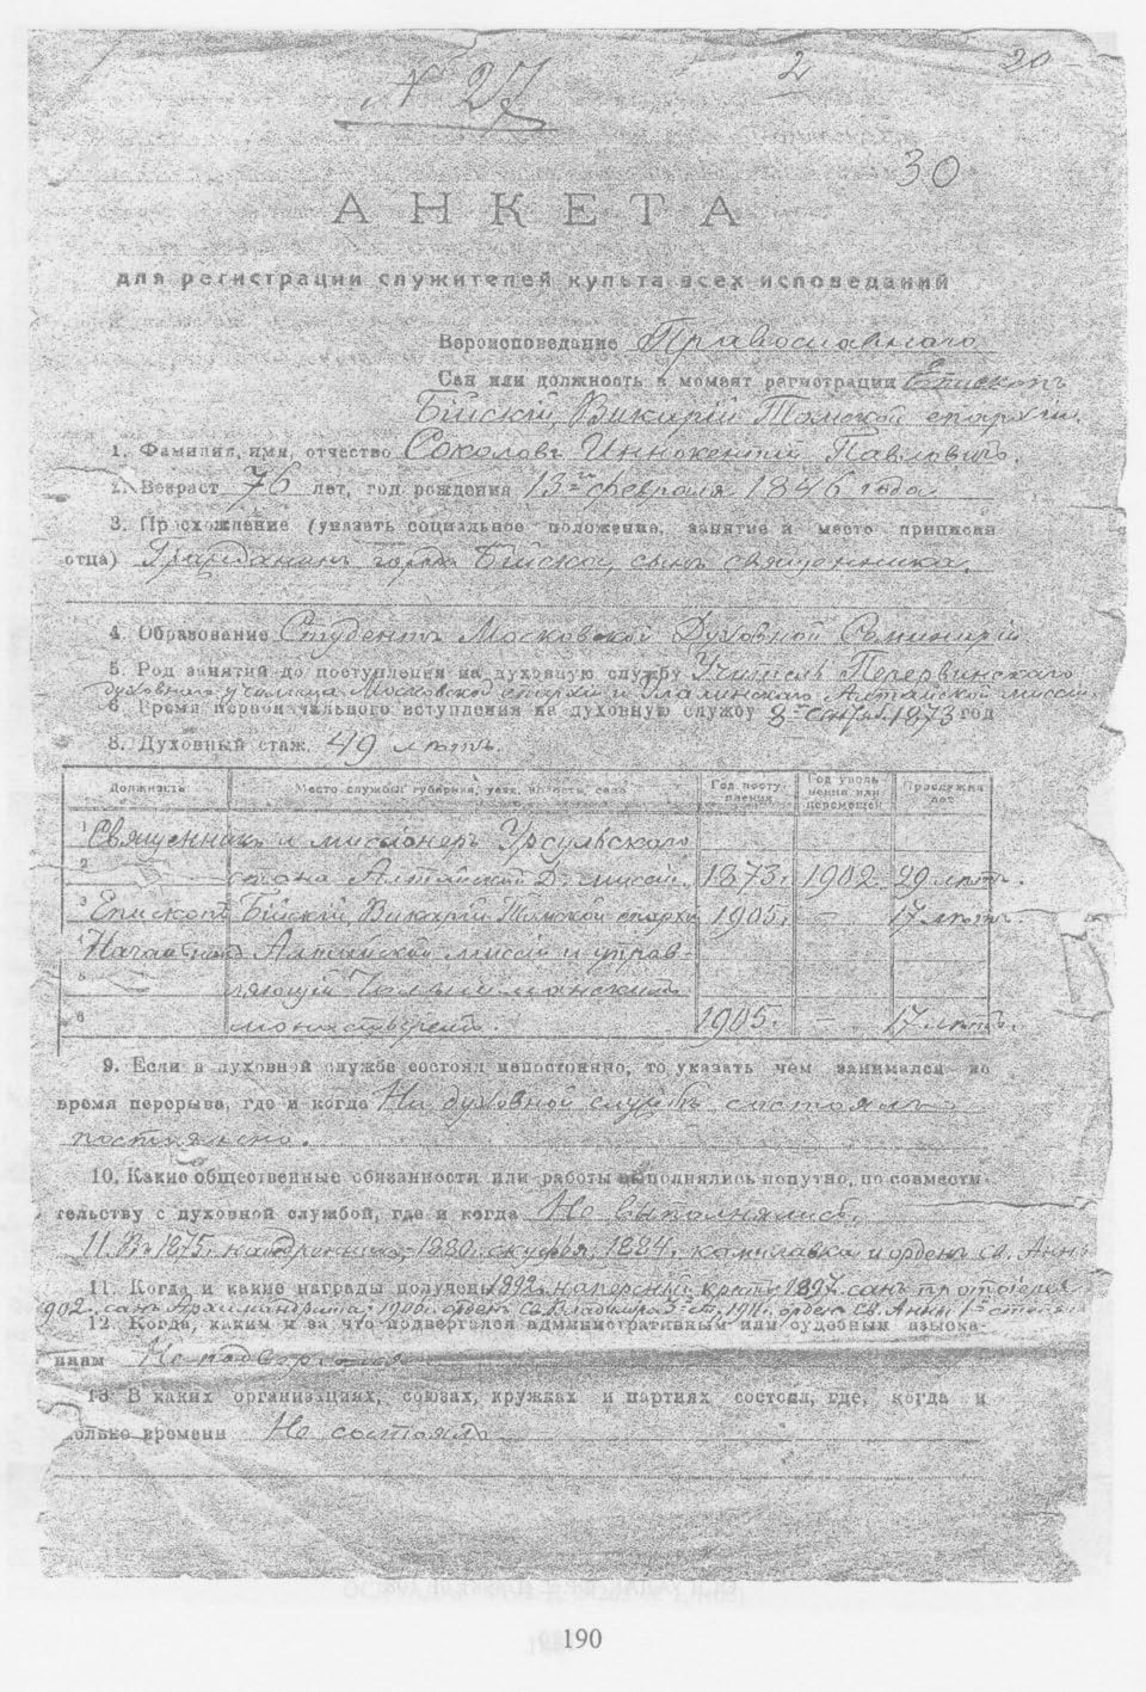 N 27
2
20
30
АНКЕТА
для регистрации служителей культа всех исповеданий
Вероисповедание Православнаго
Сан или должность в момент регистрации Епископъ
Бійскій, Викарій Томской епархіи.
1. Фамилия, имя, отчество Соколовъ Иннокентій Павловичъ.
2. Возраст 76 лет, год рождения 13го февраля 1846 года.
3. Происхождение (указать социальное положение, занятие и место приписки
отца) Гражданинъ города Бійска, сынъ священника.
4. Образование Студентъ Московской Духовной Семинаріи
5. Род занятий до поступления на духовную службу Учитель Перервинскаго
духовнаго училища Московской епархіи и Улалинскаго Алтайской миссіи
6. Время первоначального вступления на духовную службу 8го сентяб. 1873 год
8. Духовный стаж. 49 лѣтъ.
Должность Место службы: губерния, уезд, волость, село Год поступления Год увольнения или перемещен. Прослужил лет
1 Священникъ и миссіонеръ Урсульскаго
2 стана Алтайской Д. миссіи. 1873г. 1902. 29 лѣтъ.
3 Епископъ Бійскій, Викарій Томской епархіи 1905г. — 17 лѣтъ.
4 Начальникъ Алтайской миссіи и управ-
5 ляющій Чолышманскимъ
6 монастыремъ. 1905г. — 17 лѣтъ.
9. Если в духовной службе состоял непостоянно, то указать чем занимался во
время перерыва, где и когда На духовной службѣ состоялъ
постоянно.
10. Какие общественные обязанности или работы выполнялись попутно, по совмести-
тельству с духовной службой, где и когда Не выполнялись.
11. Въ 1875г. набедренникъ, 1880. скуфья. 1884г. камилавка и орденъ св. Анны
11. Когда и какие награды получены 1892. наперсный крестъ 1897. санъ протоіерея
902. санъ Архимандрита; 1906. орденъ Св. Владиміра 3й ст. 1911г. орденъ Св. Анны 1й степени
12. Когда, каким и за что подвергался административным или судебным взыска-
ниям Не подвергался
13. В каких организациях, союзах, кружках и партиях состоял, где, когда и
сколько времени Не состоялъ
190